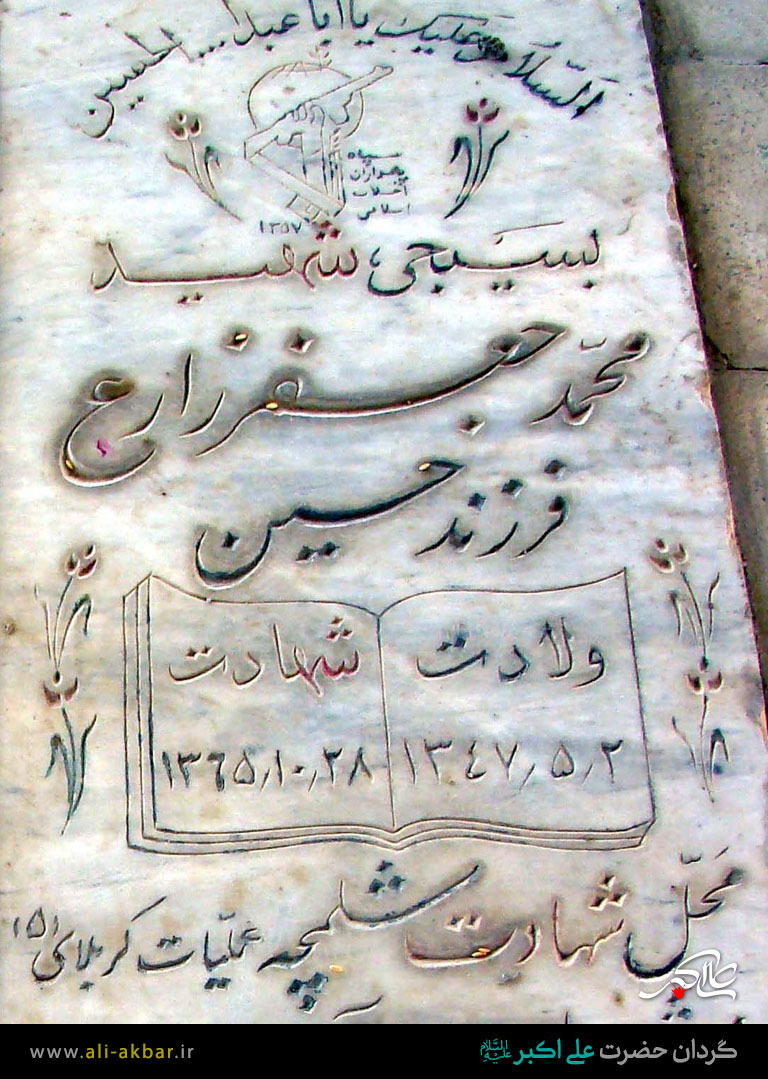 السّلام علیک یا ابا عبدا... الحسین
سپاه
پاسداران
انقلاب
اسلامی
۱۳۵۷
بسیجی، شهید
محمّد جعفر زارع
فرزند حسین
ولادت
۱۳٤۷٫۵٫۲
شهادت
۱۳٦۵٫۱۰٫۲۸
محلّ شهادت شلمچه عملیّات کربلای (۵)
علی اکبر
گردان حضرت علی اکبر علیه السلام
www.ali-akbar.ir